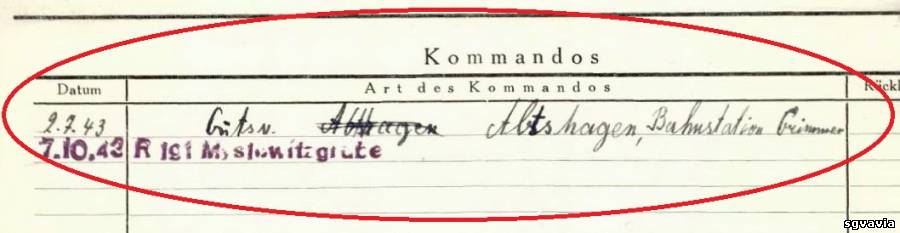 Kommandos
Datum Art des Kommandos Rückk
2.7.43 Gutsv. Abthagen Abtshagen, Bahnstation Grimmen
7.10.43 R 191 Myslowitzgrube
sgvavia